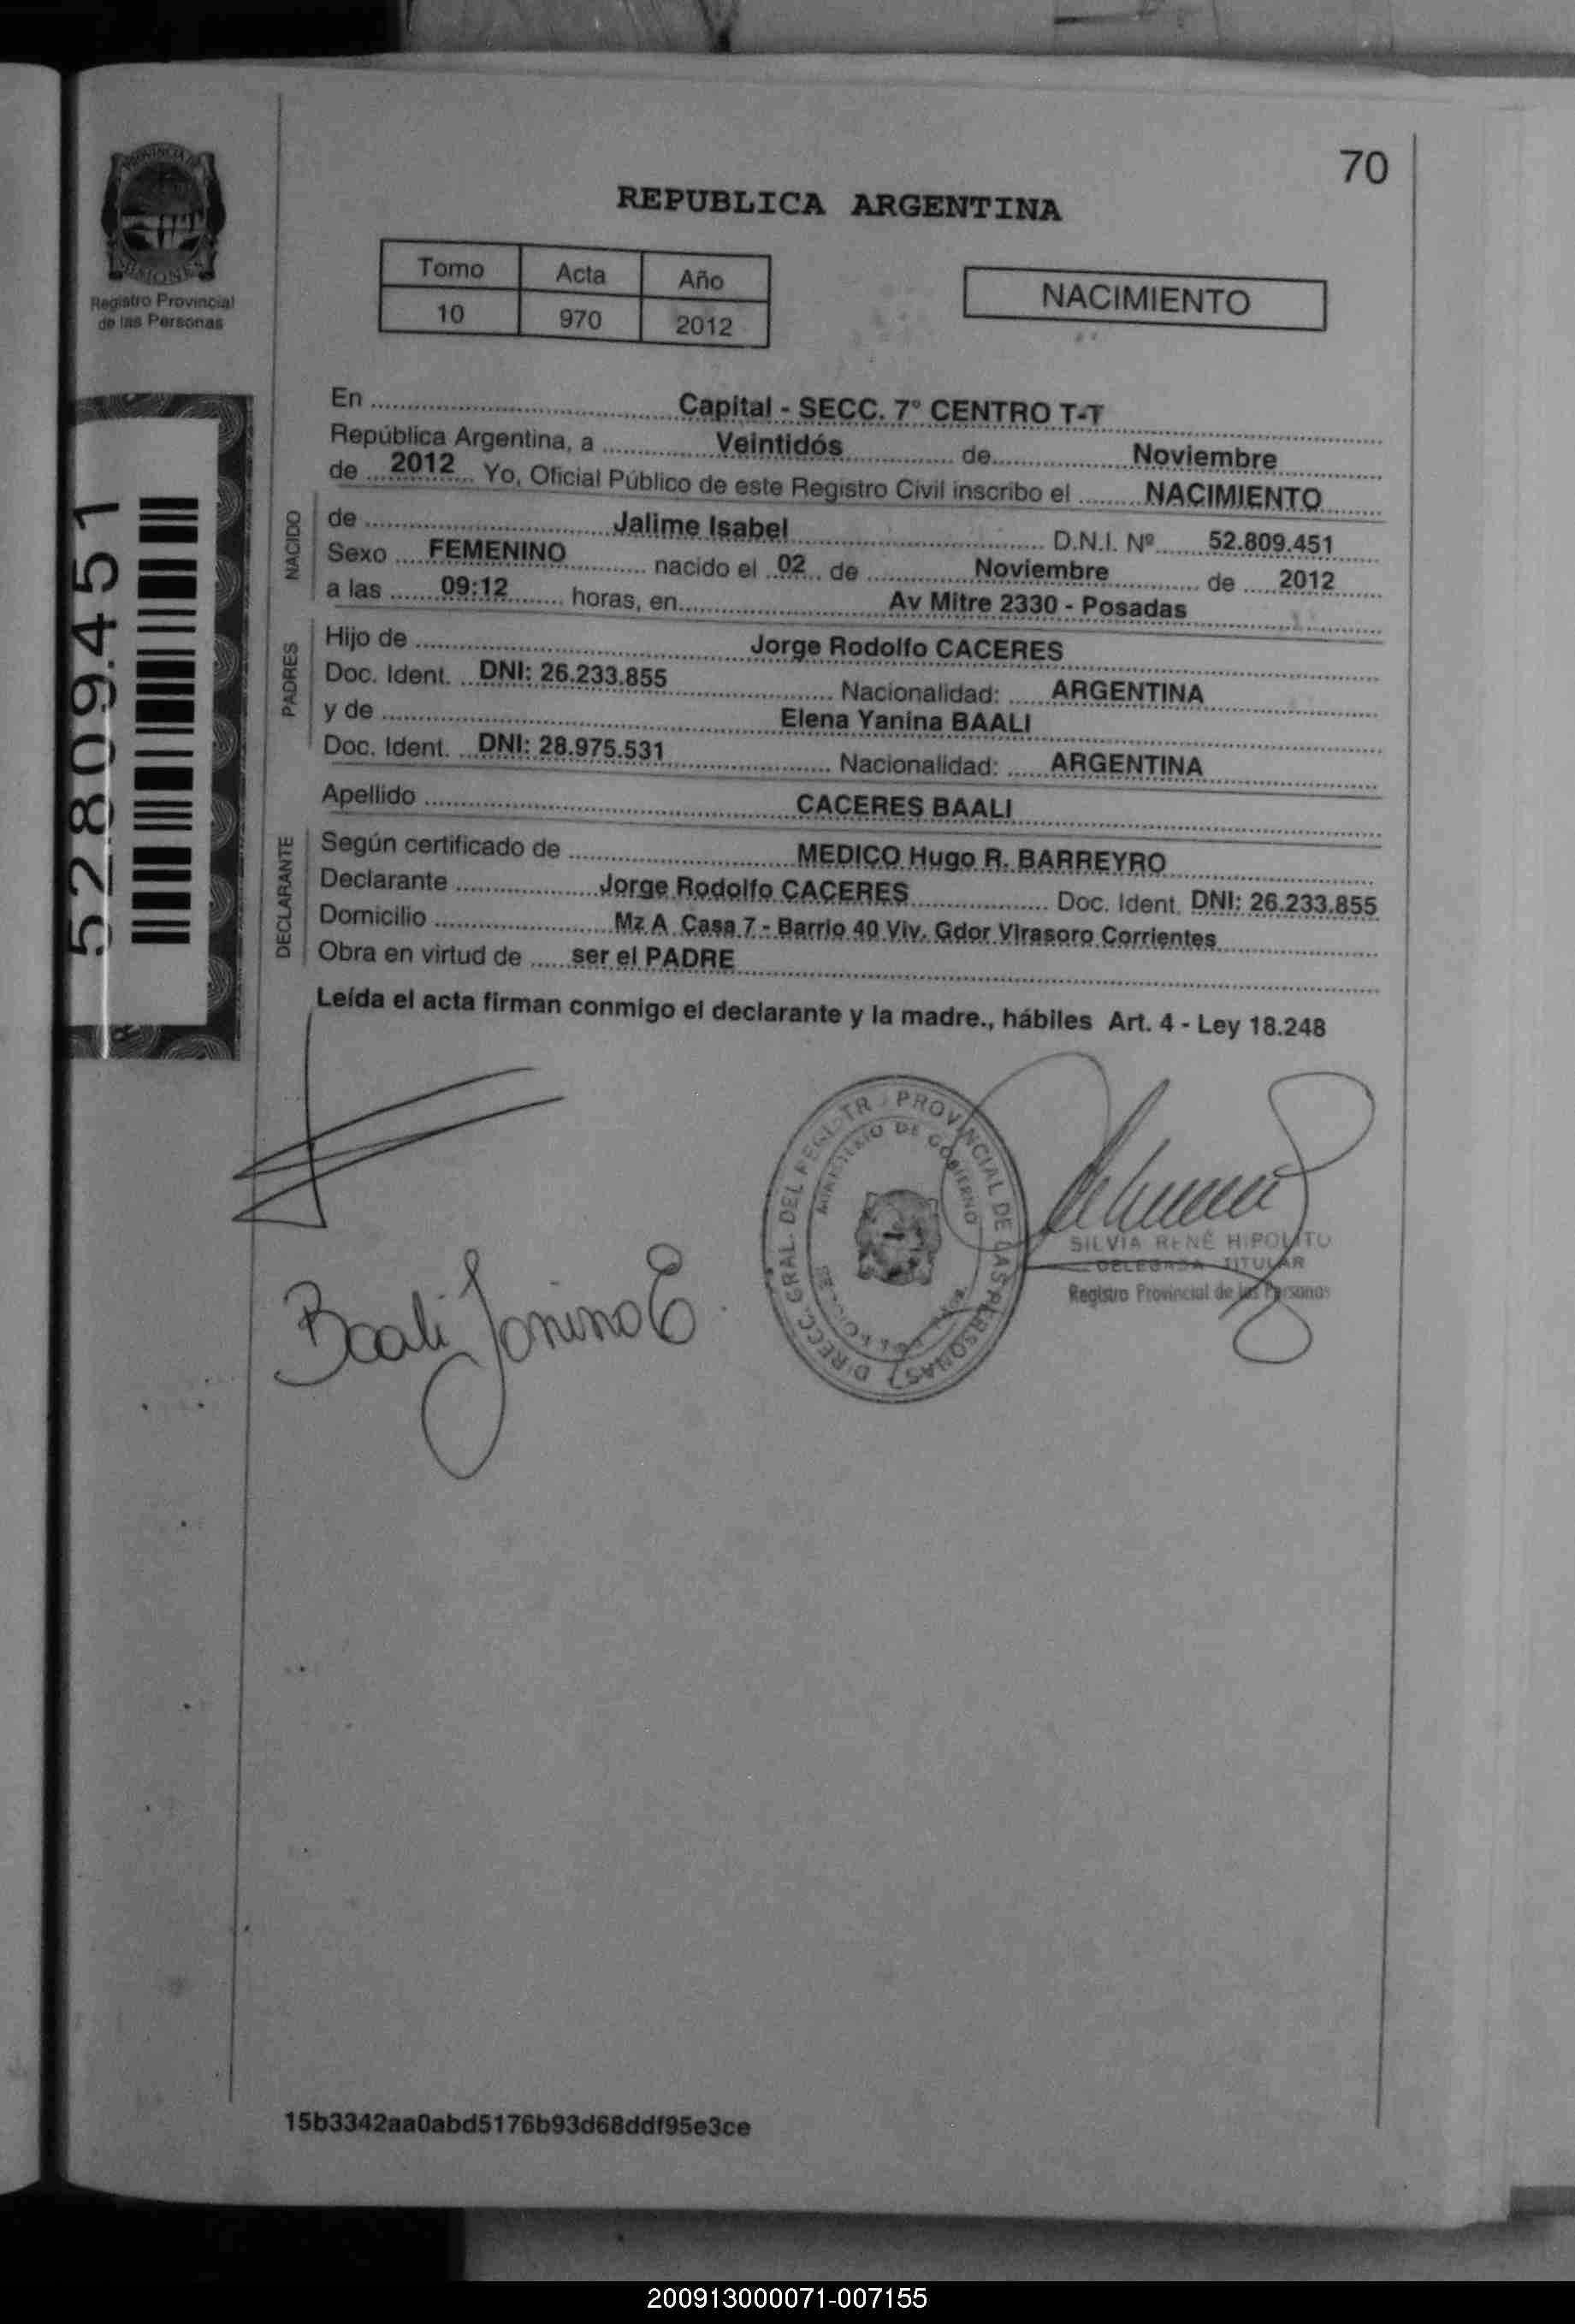 70
REPUBLICA ARGENTINA
Tomo Acta Año
10 970 2012
NACIMIENTO
PROVINCIA DE
MISIONES
Registro Provincial
de las Personas
52809451
En Capital - SECC. 7° CENTRO T-T
República Argentina, a Veintidós de Noviembre
de 2012 Yo, Oficial Público de este Registro Civil inscribo el NACIMIENTO
NACIDO
de Jalime Isabel D.N.I. Nº 52.809.451
Sexo FEMENINO nacido el 02 de Noviembre de 2012
a las 09:12 horas, en Av Mitre 2330 - Posadas
PADRES
Hijo de Jorge Rodolfo CACERES
Doc. Ident. DNI: 26.233.855 Nacionalidad: ARGENTINA
y de Elena Yanina BAALI
Doc. Ident. DNI: 28.975.531 Nacionalidad: ARGENTINA
Apellido CACERES BAALI
DECLARANTE
Según certificado de MEDICO Hugo R. BARREYRO
Declarante Jorge Rodolfo CACERES Doc. Ident. DNI: 26.233.855
Domicilio Mz A Casa 7 - Barrio 40 Viv. Gdor Virasoro Corrientes
Obra en virtud de ser el PADRE
Leída el acta firman conmigo el declarante y la madre., hábiles Art. 4 - Ley 18.248
DIRECC. GRAL. DEL REGISTR PROVINCIAL DE LAS PERSONAS
MINISTERIO DE GOBIERNO
SILVIA RENÉ HIPOLITO
DELEGADA TITULAR
Registro Provincial de las Personas
Baali Janina E
15b3342aa0abd5176b93d68ddf95e3ce
200913000071-007155